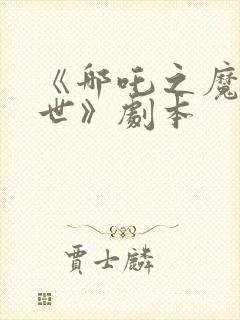 《哪吒之魔
世》劇本
賈士麟